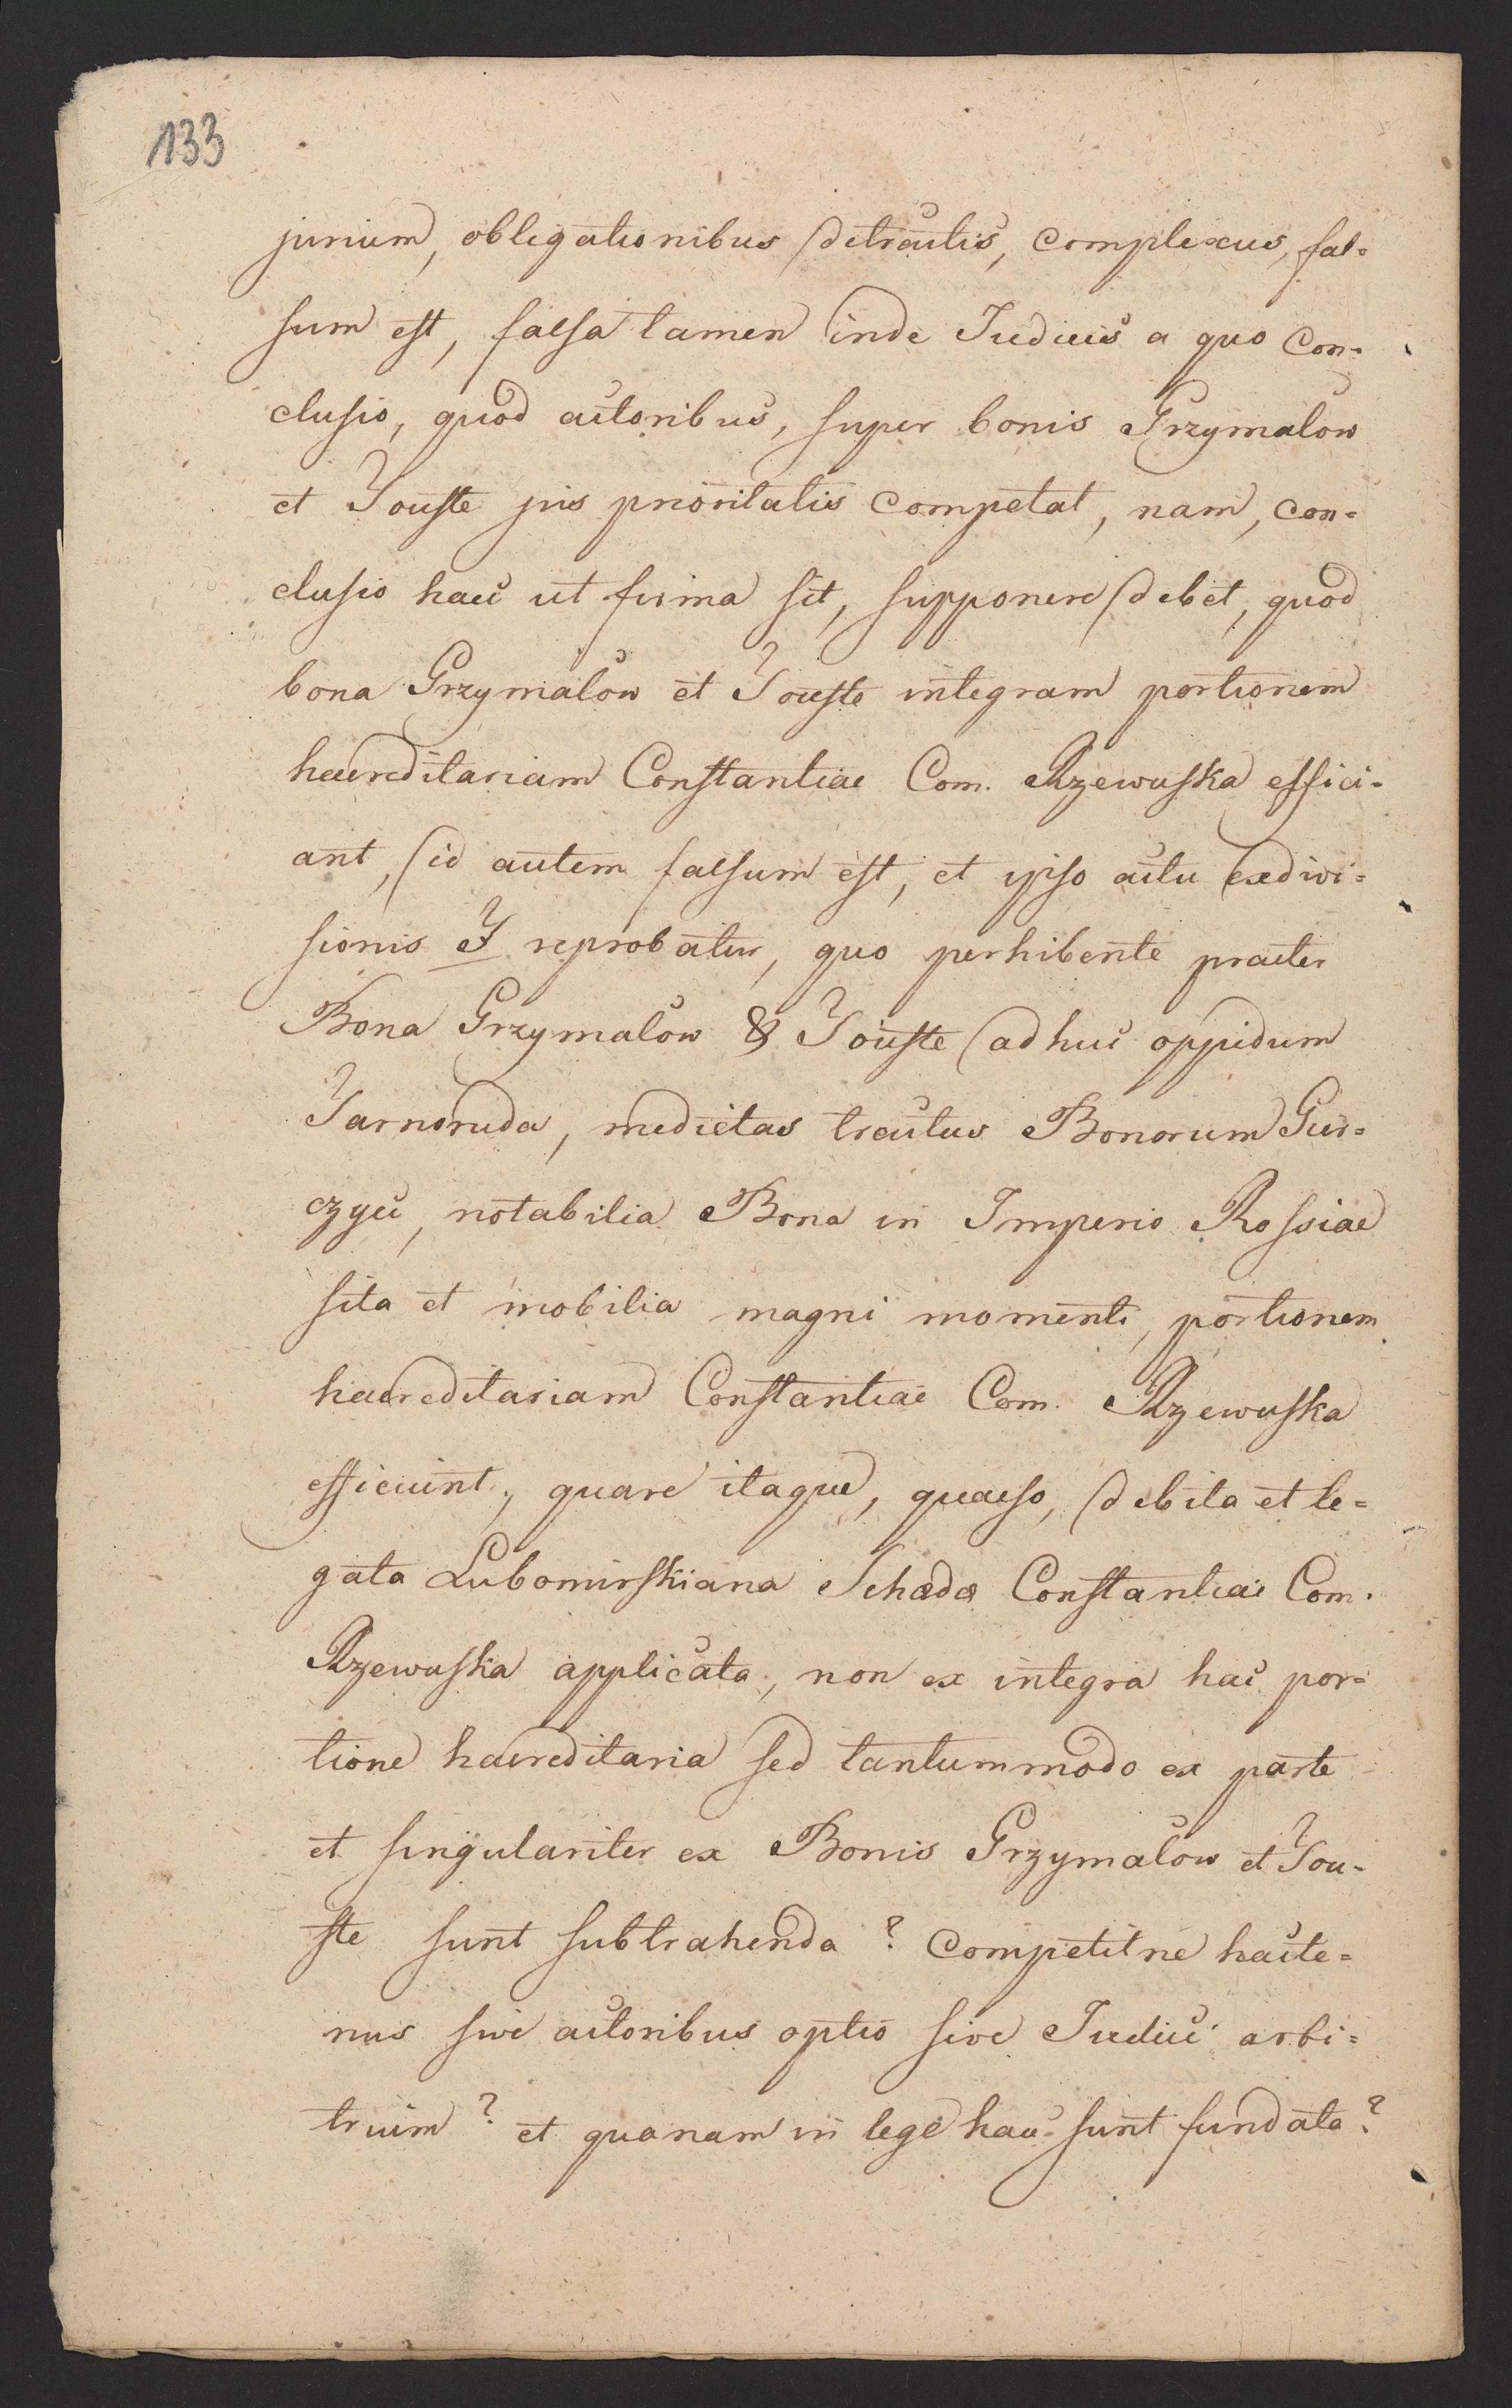 133
jurium, obligationibus detractis, complexus, fal=
sum est, falsa tamen inde Judicis a quo con=
clusio, quod actoribus, super bonis Grzymalow
et Touste jus prioritatis competat, nam, con=
clusio haec ut firma sit, supponere debet, quod
bona Grzymalow et Touste integram portionem
haereditariam Constantiae Com. Rzewuska effici=
ant, id autem falsum est, et ipso actu exdivi=
sionis I reprobatur, quo perhibente praeter
Bona Grzymalow & Touste adhuc oppidum
Tarnoruda, medietas tractus Bonorum Gur=
czyc, notabilia Bona in Imperio Rossiae
sita et mobilia magni momenti, portionem
haereditariam Constantiae Com. Rzewuska
efficiunt, quare itaque, quaeso, debita et le=
gata Lubomirskiana Schedae Constantiae Com.
Rzewuska applicata, non ex integra hac por=
tione haereditaria sed tantummodo ex parte
et singulariter ex Bonis Grzymalow et Tou=
ste sunt subtrahenda? competitne hacte=
nus sive actoribus optio sive Judici arbi=
trium? et quanam in lege haec sunt fundata?